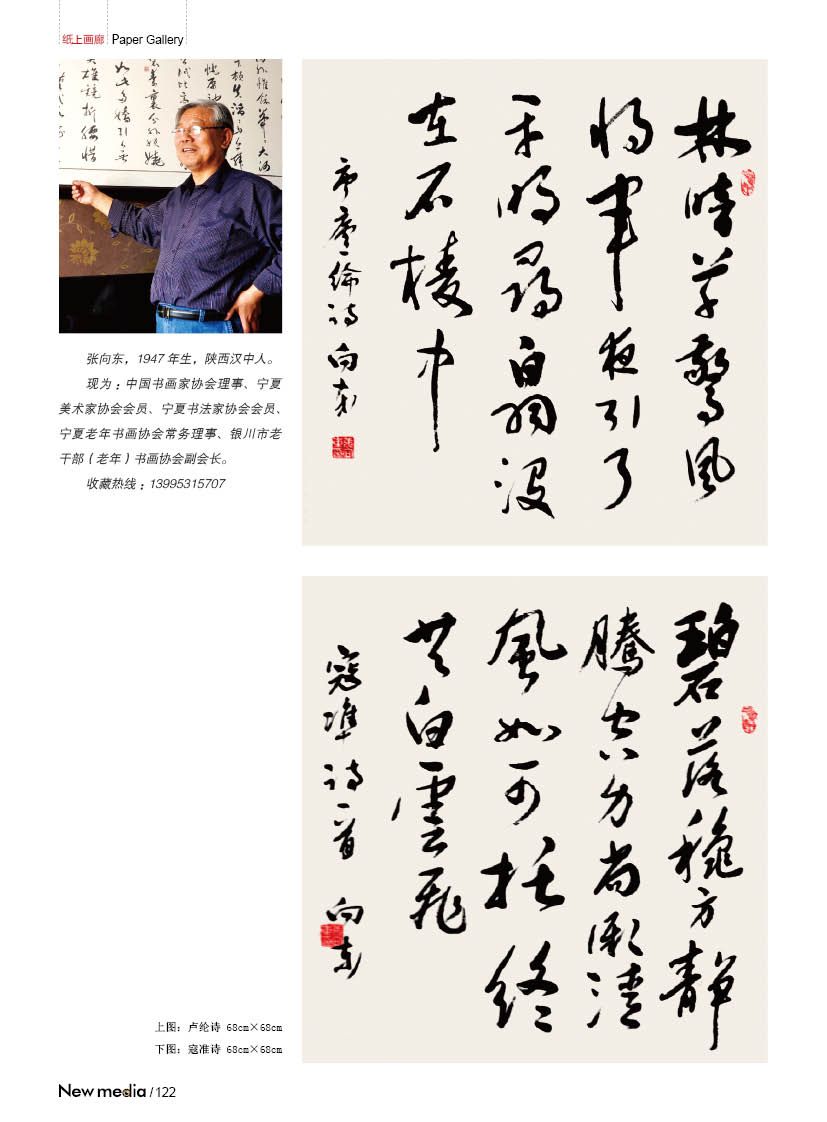 纸上画廊 Paper Gallery
张向东，1947年生，陕西汉中人。
现为：中国书画家协会理事、宁夏
美术家协会会员、宁夏书法家协会会员、
宁夏老年书画协会常务理事、银川市老
干部（老年）书画协会副会长。
收藏热线：13995315707
林暗草驚風
将軍夜引弓
平明尋白羽没
在石棱中
唐盧綸诗 向东
碧落穐方静
騰空力尚微清
風如可托終
共白雲飛
寇準诗一首 向东
上图：卢纶诗 68cm×68cm
下图：寇准诗 68cm×68cm
New media / 122